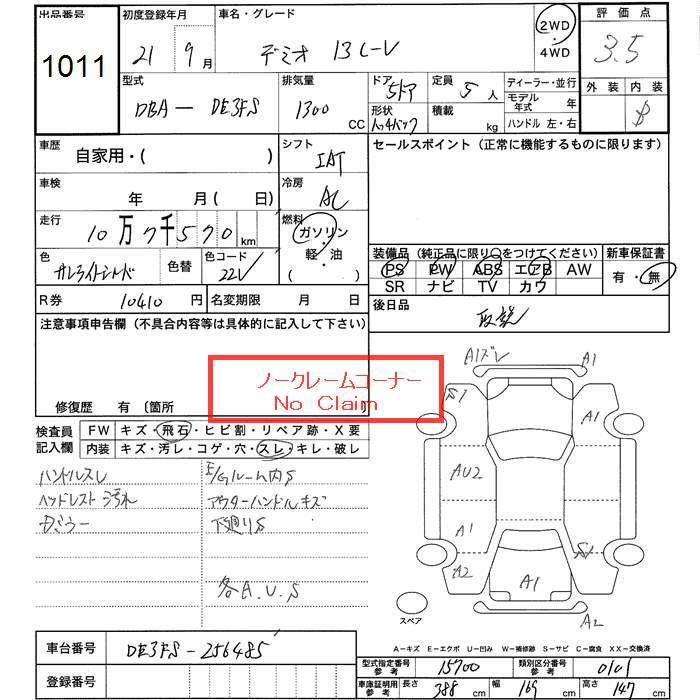 出品番号 初度登録年月 車名・グレード 2WD 評価点
1011 21 9月 デミオ 13C-V ・4WD 3.5
型式 排気量 ドア 定員 ディーラー・並行 外装 内装
DBA — DE3FS 1300 CC 5ドア 5人 モデル年式 年 B
形状 積載 kg ハンドル 左・右
車歴 シフト セールスポイント (正常に機能するものに限ります)
自家用・( ) IAT
車検 冷房
年 月( 日) AC
走行 燃料
10万7千570km ガソリン
軽・油
( )
装備品 (純正品に限り○をつけてください) 新車保証書
色 色替 色コード PS PW ABS エアB AW 有・無
22V SR ナビ TV カワ
R券 10410円 名変期限 月 日 後日品
取説
注意事項申告欄 (不具合内容等は具体的に記入して下さい)
ノークレームコーナー
No Claim
修復歴 有 〔箇所
A1ズレ A1
S1 A1
AU2
A1 S1
A2 A1
A2
スペア
検査員 FW キズ・飛石・ヒビ割・リペア跡・X要
記入欄 内装 キズ・汚レ・コゲ・穴・スレ・キレ・破レ
ハンドルスレ E/Gルーム内S
ヘッドレスト汚れ アウターハンドルキズ
下廻りS
各A.U.S
A-キズ E-エクボ U-凹み W-補修跡 S-サビ C-腐食 XX-交換済
車台番号 DE3FS-256485
型式指定番号 参考 15700 類別区分番号 参考 0101
登録番号
車庫証明用 参考 長さ 388cm 幅 169cm 高さ 147cm